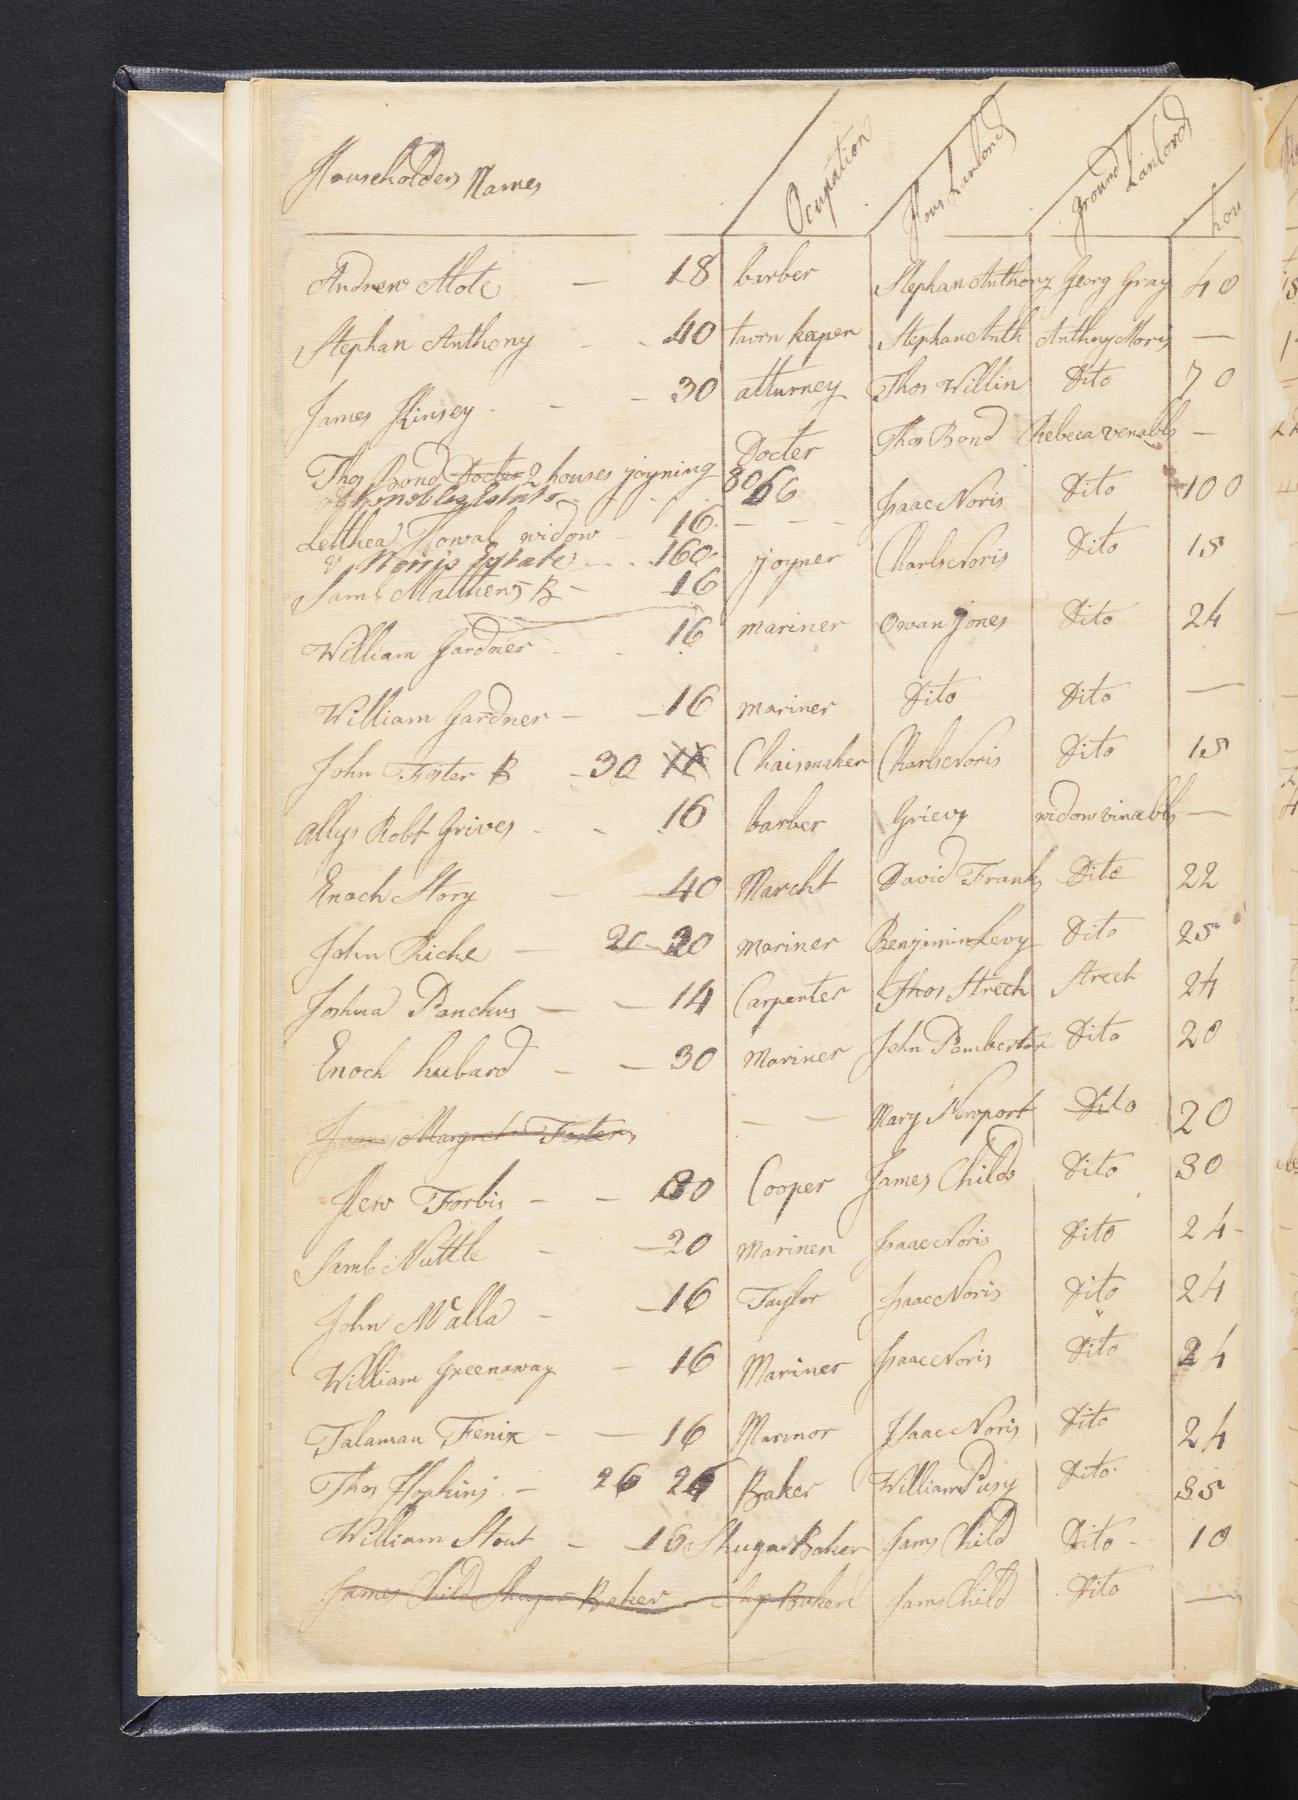 Householders Names Ocupation Hous Lanlord ground Lanlord hou
Andrew Mote — 18 barber Stephan Anthony Georg Gray 40
Stephan Anthony 40 tavrn keeper Stephan Anth Anthony Moris —
James Kinsey — 30 atturney Thos Willin Dito 70
Thos Bond Docter 2 houses joyning 80 Docter Thos Bond Rebeca venabls —
66 Isaac Noris Dito 100
Letthea widow 16 — — —
Norris Estate 160 joyner Charls Noris Dito 15
Saml Matthews B — 16
William Gardner 16 mariner Owan Jones Dito 24
William Gardner — 16 mariner Dito Dito —
John Foster B — 30 16 Chaismaker Charls Noris Dito 15
allys Robt Grives 16 barber Grievs widow vinabls —
Enoch Story — 40 Marcht David Franks Dito 22
John Riche — 20 20 mariner Benjimin Levy Dito 25
Joshua Panckus — — 14 Carpenter Thos Strech Strech 24
Enoch hubard — — 30 Mariner John Pemberton Dito 20
James Margret Foster — — Mary Newport Dito 20
Hew Forbis — — 30 Cooper James Childs Dito 30
Samb Nuttle — 20 Mariner Isaac Noris Dito 24 -
John Mcalla — 16 Taylor Isaac Noris Dito 24
William Greenaway — 16 Mariner Isaac Noris Dito 24
Talaman Fenix — — 16 Marinor Isaac Noris Dito 24
Thos Hopkins — 26 26 Baker William Pusy Dito 35
William Stout — 16 Shugar Baker Jams Child Dito - 10
James Child Shugar Baker Sug Baker Jams Child Dito —